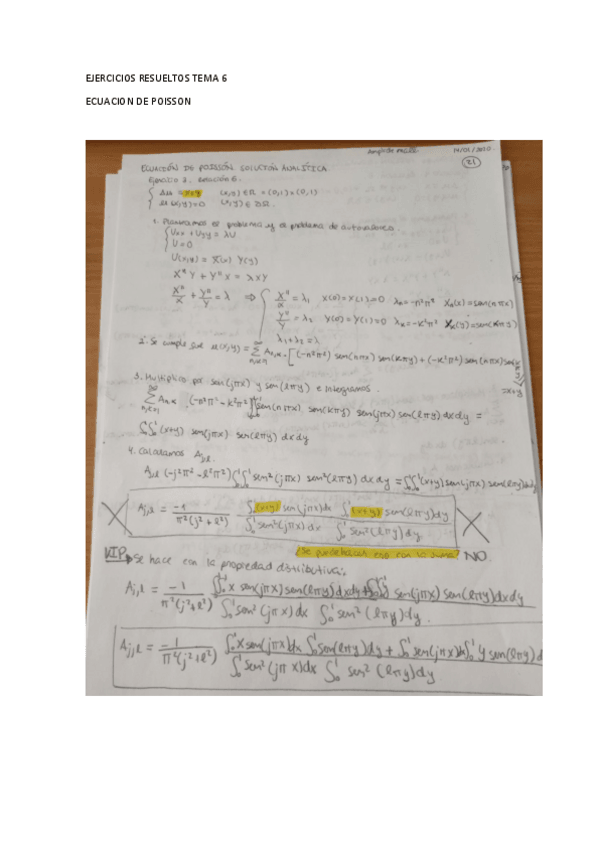 EJERCICIOS RESUELTOS TEMA 6
ECUACION DE POISSON
14/01/2020
21
ECUACIÓN DE POISSON SOLUCIÓN ANALÍTICA
Ejercicio 2.
Δu = x+y (x,y) ∈ Ω = (0,1)×(0,1)
u(x,y)=0 (x,y) ∈ ∂Ω.
1. Planteamos el problema y el problema de autovalores.
Uxx + Uyy = λU
U=0
U(x,y) = X(x) Y(y)
X'' Y + Y'' X = λXY
X''/X + Y''/Y = λ ⇒ X''/X = λ1 X(0)=X(1)=0 λn=-n²π² Xn(x)=sen(nπx)
Y''/Y = λ2 Y(0)=Y(1)=0 λk=-k²π² Yk(y)=sen(kπy)
λ1+λ2=λ
2. Se cumple que u(x,y)= ∞ Σ n,k=1 An,k · [(-n²π²) sen(nπx) sen(kπy) + (-k²π²) sen(nπx) sen(kπy)]
=x+y
3. Multiplico por sen(jπx) y sen(lπy) e integramos.
∞ Σ n,k=1 An,k · (-n²π²-k²π²) ∫₀¹∫₀¹ sen(nπx) sen(kπy) sen(jπx) sen(lπy) dx dy =
∫₀¹∫₀¹ (x+y) sen(jπx) sen(lπy) dx dy
4. Calculamos Aj,l
Aj,l (-j²π²-l²π²) ∫₀¹∫₀¹ sen²(jπx) sen²(lπy) dx dy = ∫₀¹∫₀¹ (x+y) sen(jπx) sen(lπy) dxdy
Aj,l = -1/π²(j²+l²) ∫₀¹(x+y) sen(jπx)dx ∫₀¹(x+y) sen(lπy)dy / ∫₀¹ sen²(jπx) dx ∫₀¹ sen²(lπy) dy.
¿Se puede hacer eso con la suma? NO.
VIP Se hace con la propiedad distributiva:
Aj,l = -1/π²(j²+l²) ∫₀¹∫₀¹ x sen(jπx) sen(lπy) dxdy + ∫₀¹∫₀¹ y sen(jπx) sen(lπy) dx dy / ∫₀¹ sen²(jπx) dx ∫₀¹ sen²(lπy) dy.
Aj,l = -1/π²(j²+l²) ∫₀¹ x sen(jπx)dx ∫₀¹ sen(lπy)dy + ∫₀¹ sen(jπx)dx ∫₀¹ y sen(lπy) d / ∫₀¹ sen²(jπx)dx ∫₀¹ sen²(lπy) dy